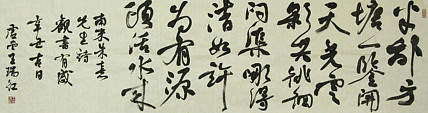 半亩方
塘一鉴开
天光云
影共徘徊
问渠哪得
清如许
为有源
头活水来
南宋朱熹
先生诗
观书有感
辛丑吉日
王瑞江